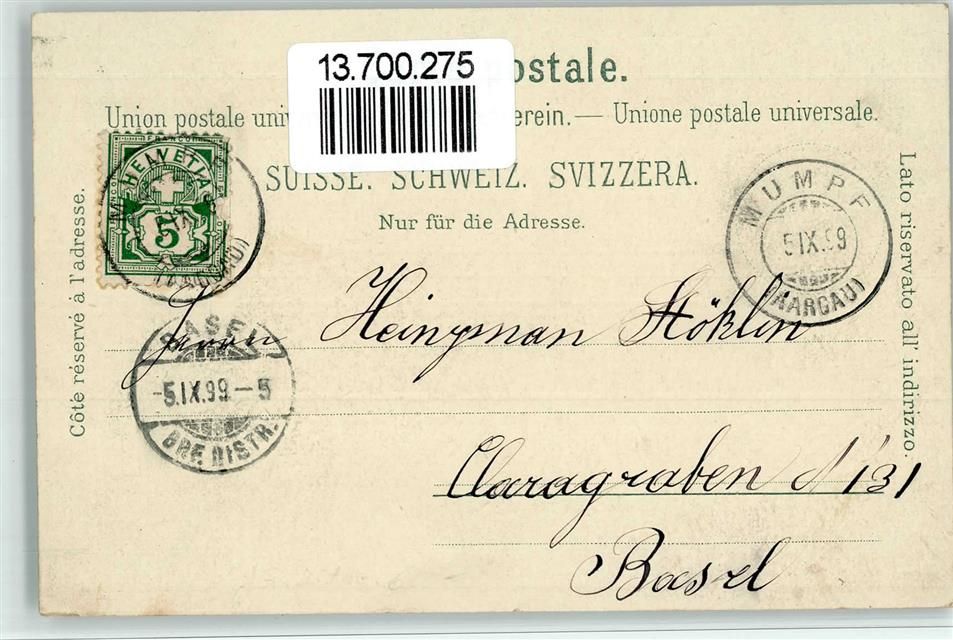 13.700.275
postale.
Union postale univ erein. — Unione postale universale.
SUISSE. SCHWEIZ. SVIZZERA.
Nur für die Adresse.
Côté réservé à l'adresse.
Lato riservato all' indirizzo.
FRANCO
HELVETIA
5
MUMPF
5 IX.99
(AARGAU)
BASEL
-5.IX.99.-5
BRF. DISTR.
Herrn Heinzman Stöklin
Claragraben N 131
Basel